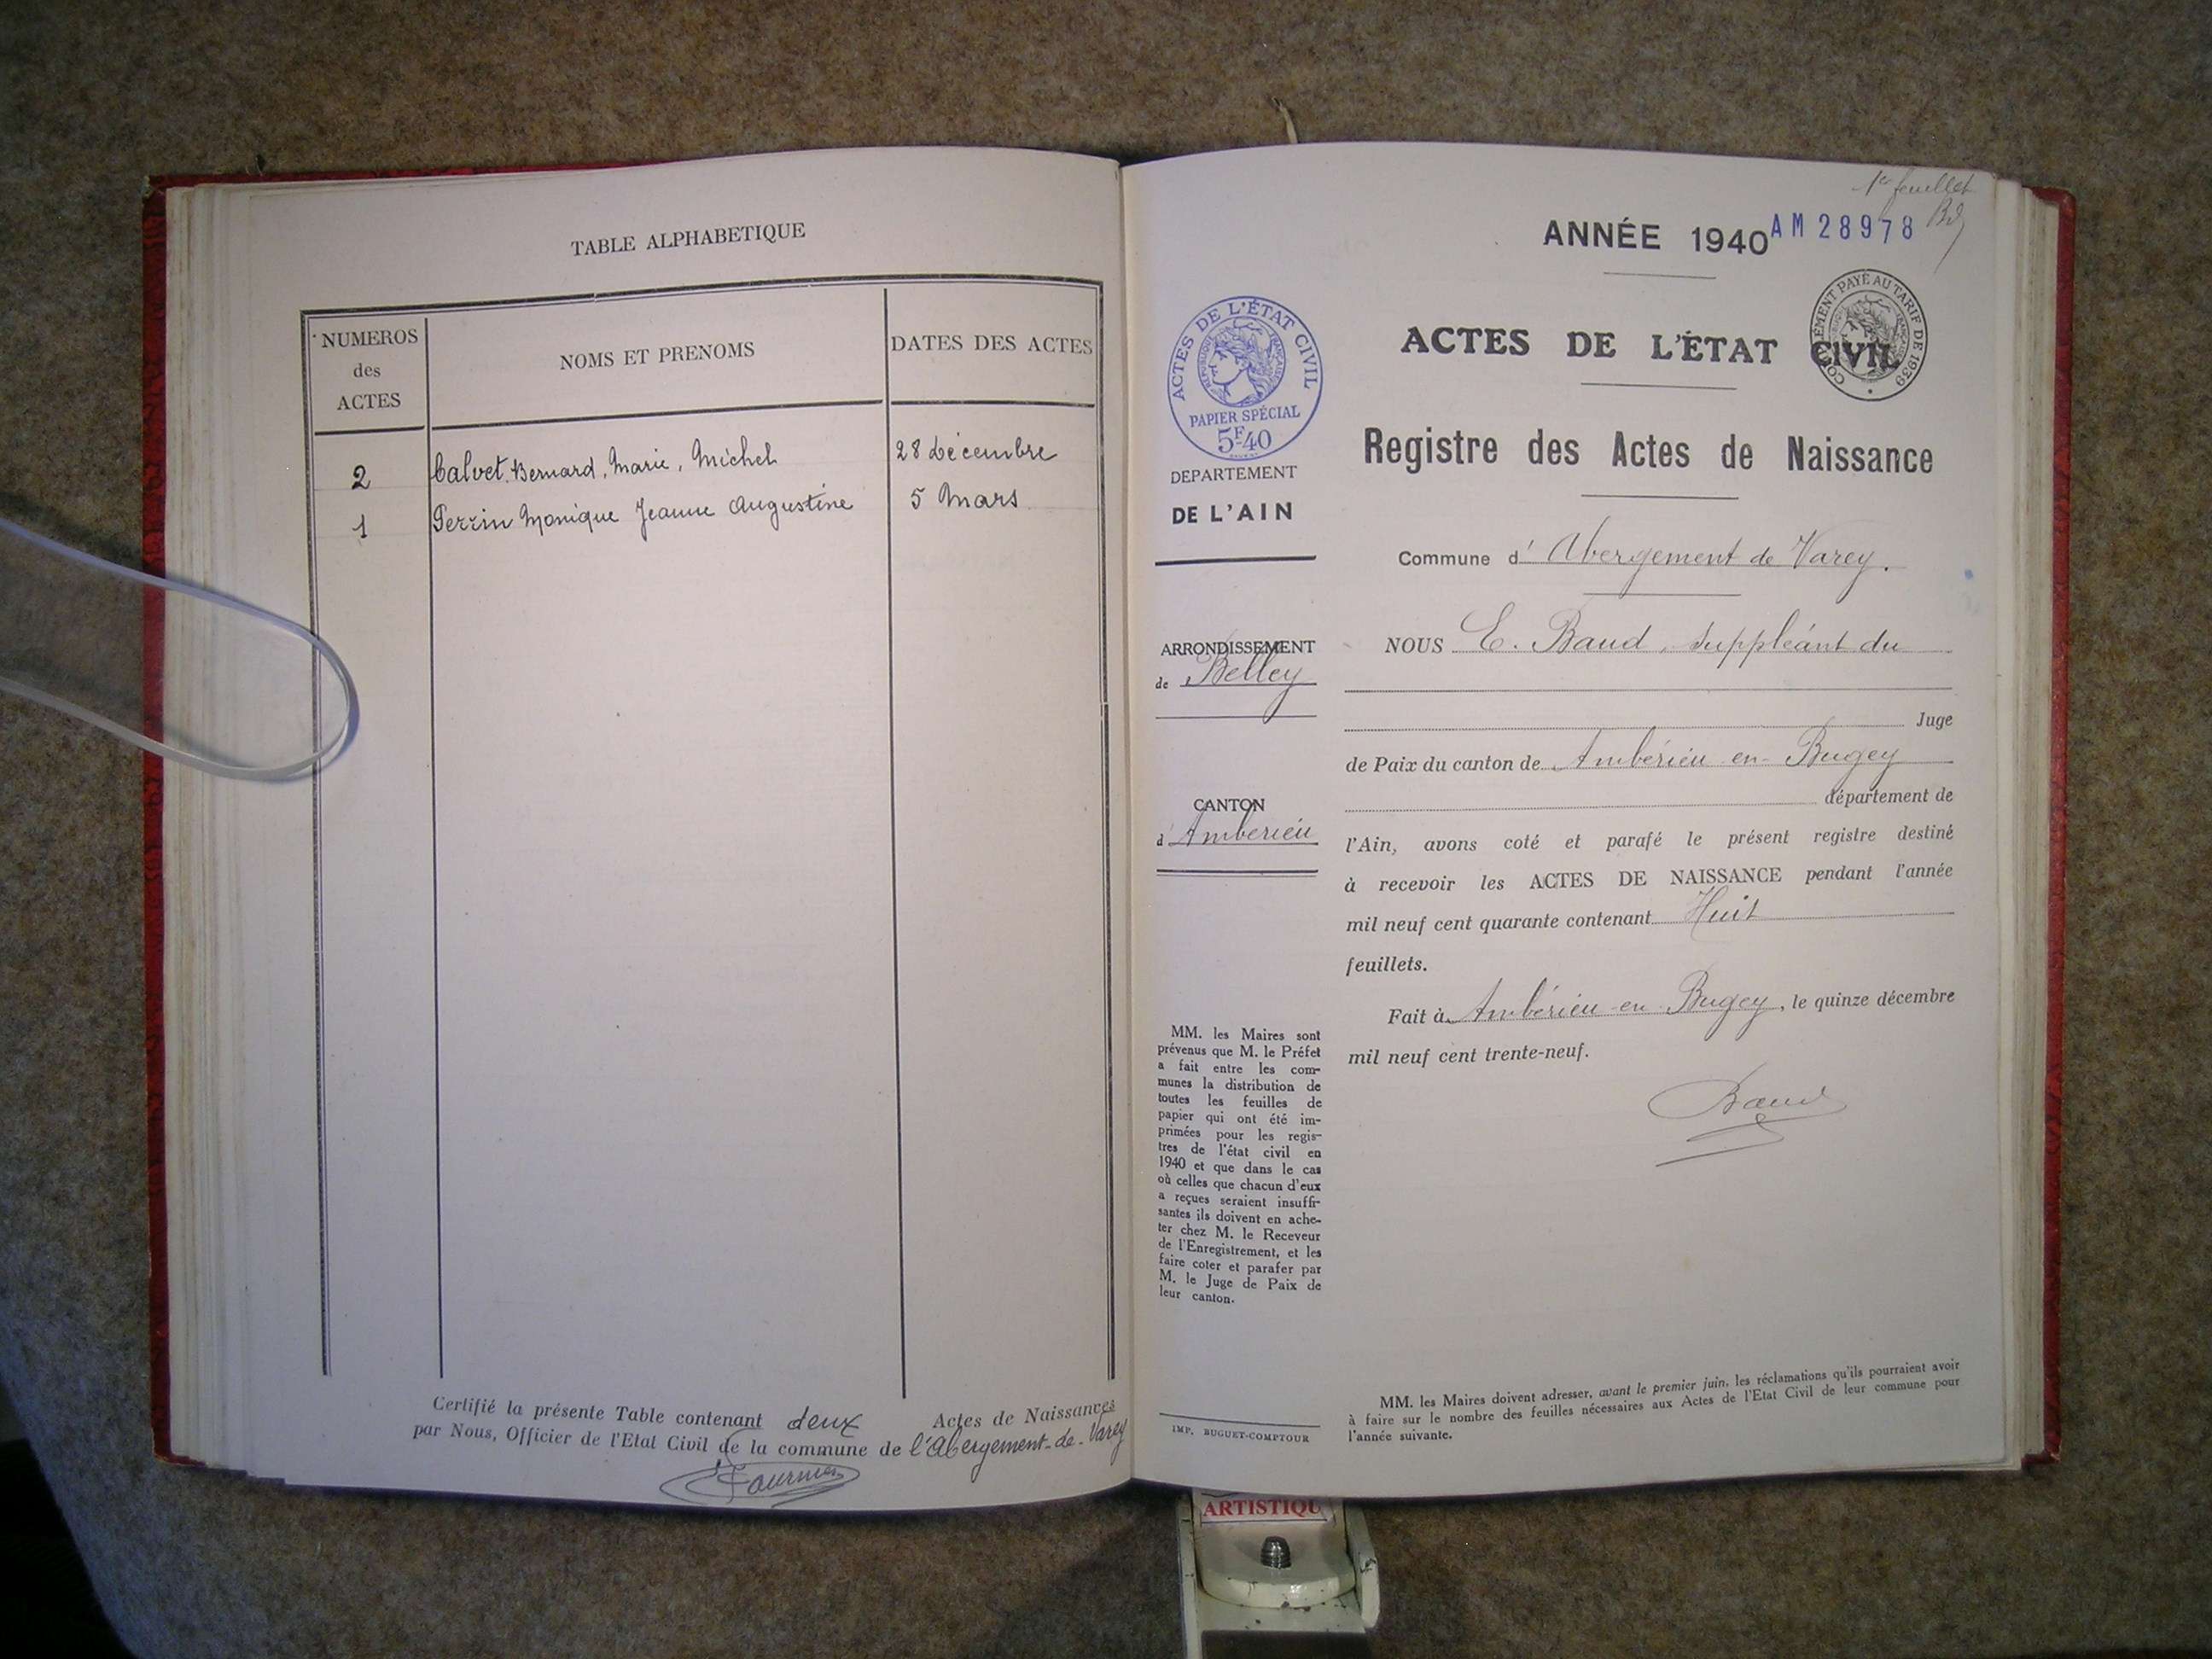 TABLE ALPHABETIQUE
NUMEROS
des
ACTES
NOMS ET PRENOMS
DATES DES ACTES
2 Calvet Bernard, Marie, Michel 28 décembre
1 Perrin Monique Jeanne Augustine 5 Mars
Certifié la présente Table contenant deux Actes de Naissances
par Nous, Officier de l'Etat Civil de la commune de l'Abergement-de-Varey
Fournier
1er feuillet
Bd
ANNÉE 1940
AM 28978
ACTES DE L'ÉTAT CIVIL
RÉPUBLIQUE FRANÇAISE
PAPIER SPÉCIAL
5F40
COMPLÉMENT PAYÉ AU TARIF DE 1939
ACTES DE L'ÉTAT CIVIL
Registre des Actes de Naissance
DEPARTEMENT
DE L'AIN
ARRONDISSEMENT
de Belley
CANTON
d'Ambérieu
MM. les Maires sont
prévenus que M. le Préfet
a fait entre les com-
munes la distribution de
toutes les feuilles de
papier qui ont été im-
primées pour les regis-
tres de l'état civil en
1940 et que dans le cas
où celles que chacun d'eux
a reçues seraient insuffi-
santes ils doivent en ache-
ter chez M. le Receveur
de l'Enregistrement, et les
faire coter et parafer par
M. le Juge de Paix de
leur canton.
IMP. BUGUET-COMPTOUR
Commune d'Abergement de Varey.
NOUS E. Baud, suppléant du
Juge
de Paix du canton de Ambérieu-en-Bugey
département de
l'Ain, avons coté et parafé le présent registre destiné
à recevoir les ACTES DE NAISSANCE pendant l'année
mil neuf cent quarante contenant Huit
feuillets.
Fait à Ambérieu-en-Bugey, le quinze décembre
mil neuf cent trente-neuf.
Baud
MM. les Maires doivent adresser, avant le premier juin, les réclamations qu'ils pourraient avoir
à faire sur le nombre des feuilles nécessaires aux Actes de l'Etat Civil de leur commune pour
l'année suivante.
ARTISTIQU